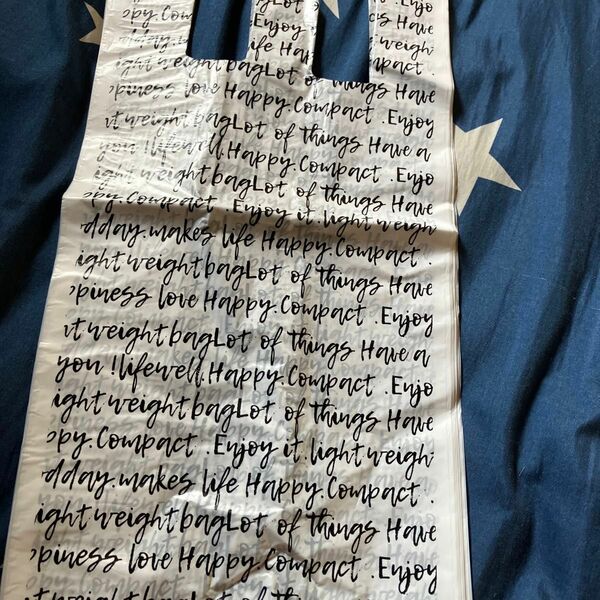 bagLot . Enjo
opy. Com Enjoy s Have
dday. life Ha weigh
ight weight bagLot of things mpact .
piness love Happy. Compact . Enjoy
it weight bagLot of things Have a
you ! lifewell. Happy. Compact . Enjo
ight weight bagLot of things Have
opy. Compact . Enjoy it. light weigh
dday. makes life Happy. Compact .
ight weight bagLot of things Have
piness love Happy. Compact . Enjoy
it weight bagLot of things Have a
you ! lifewell. Happy. Compact . Enjo
ight weight bagLot of things Have
opy. Compact . Enjoy it. light weigh
dday. makes life Happy. Compact .
ight weight bagLot of things Have
piness love Happy. Compact . Enjoy